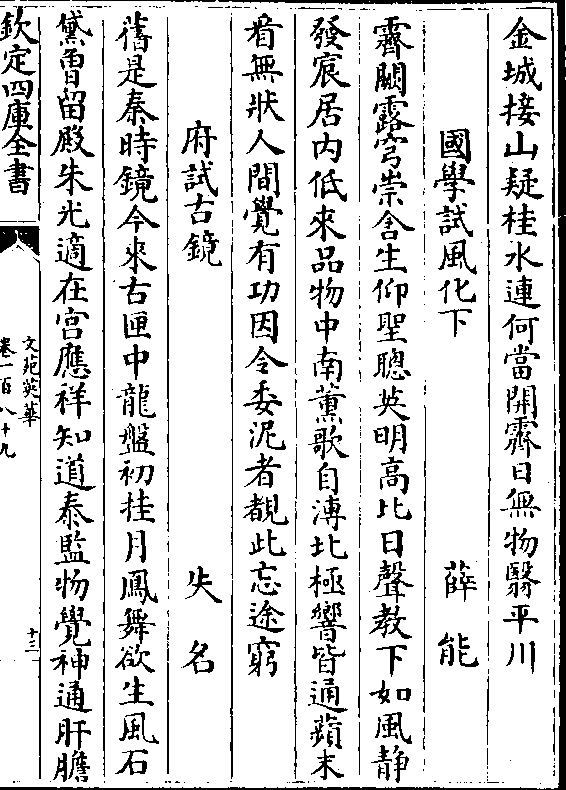 金城接山疑桂水連何當開霽日無物翳平川
國學試風化下 薛能
霽闕露穹崇含生仰聖聰英明高比日聲教下如風静
發宸居内低來品物中南薫歌自溥北極響皆通蘋末
看無狀人間覺有功因令委泥者覩此忘途窮
府試古鏡 失名
舊是秦時鏡今來古匣中龍盤初挂月鳳舞欲生風石
黛曽留殿朱光適在宫應祥知道泰監物覺神通肝膽
欽定四庫全書
文苑英華
卷一百八十九
十三